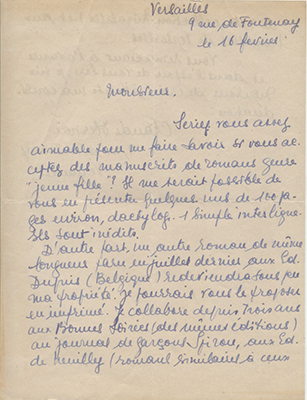 Versailles
9 rue de Fontenay
le 16 fevrier
Monsieur.
Seriez vous assez
aimable pour me faire savoir si vous ac-
ceptez des manuscrits de romans genre
"jeune fille"? Il me serait possible de
vous en présenter quelques uns de 100 pa-
ges environ, dactylog. 1 simple interligne.
Ils sont inédits.
D'autre part, un autre roman de même
longueur paru en juillet dernier aux Ed.
Dupuis (Belgique) redeviendra sous peu
ma propriété. Je pourrais vous le proposer
en imprimé. Je collabore depuis trois ans
aux Bonnes Soirées (des mêmes éditions)
au journal de garçons Spirou, aux Ed.
de Neuilly (romans similaires à ceux